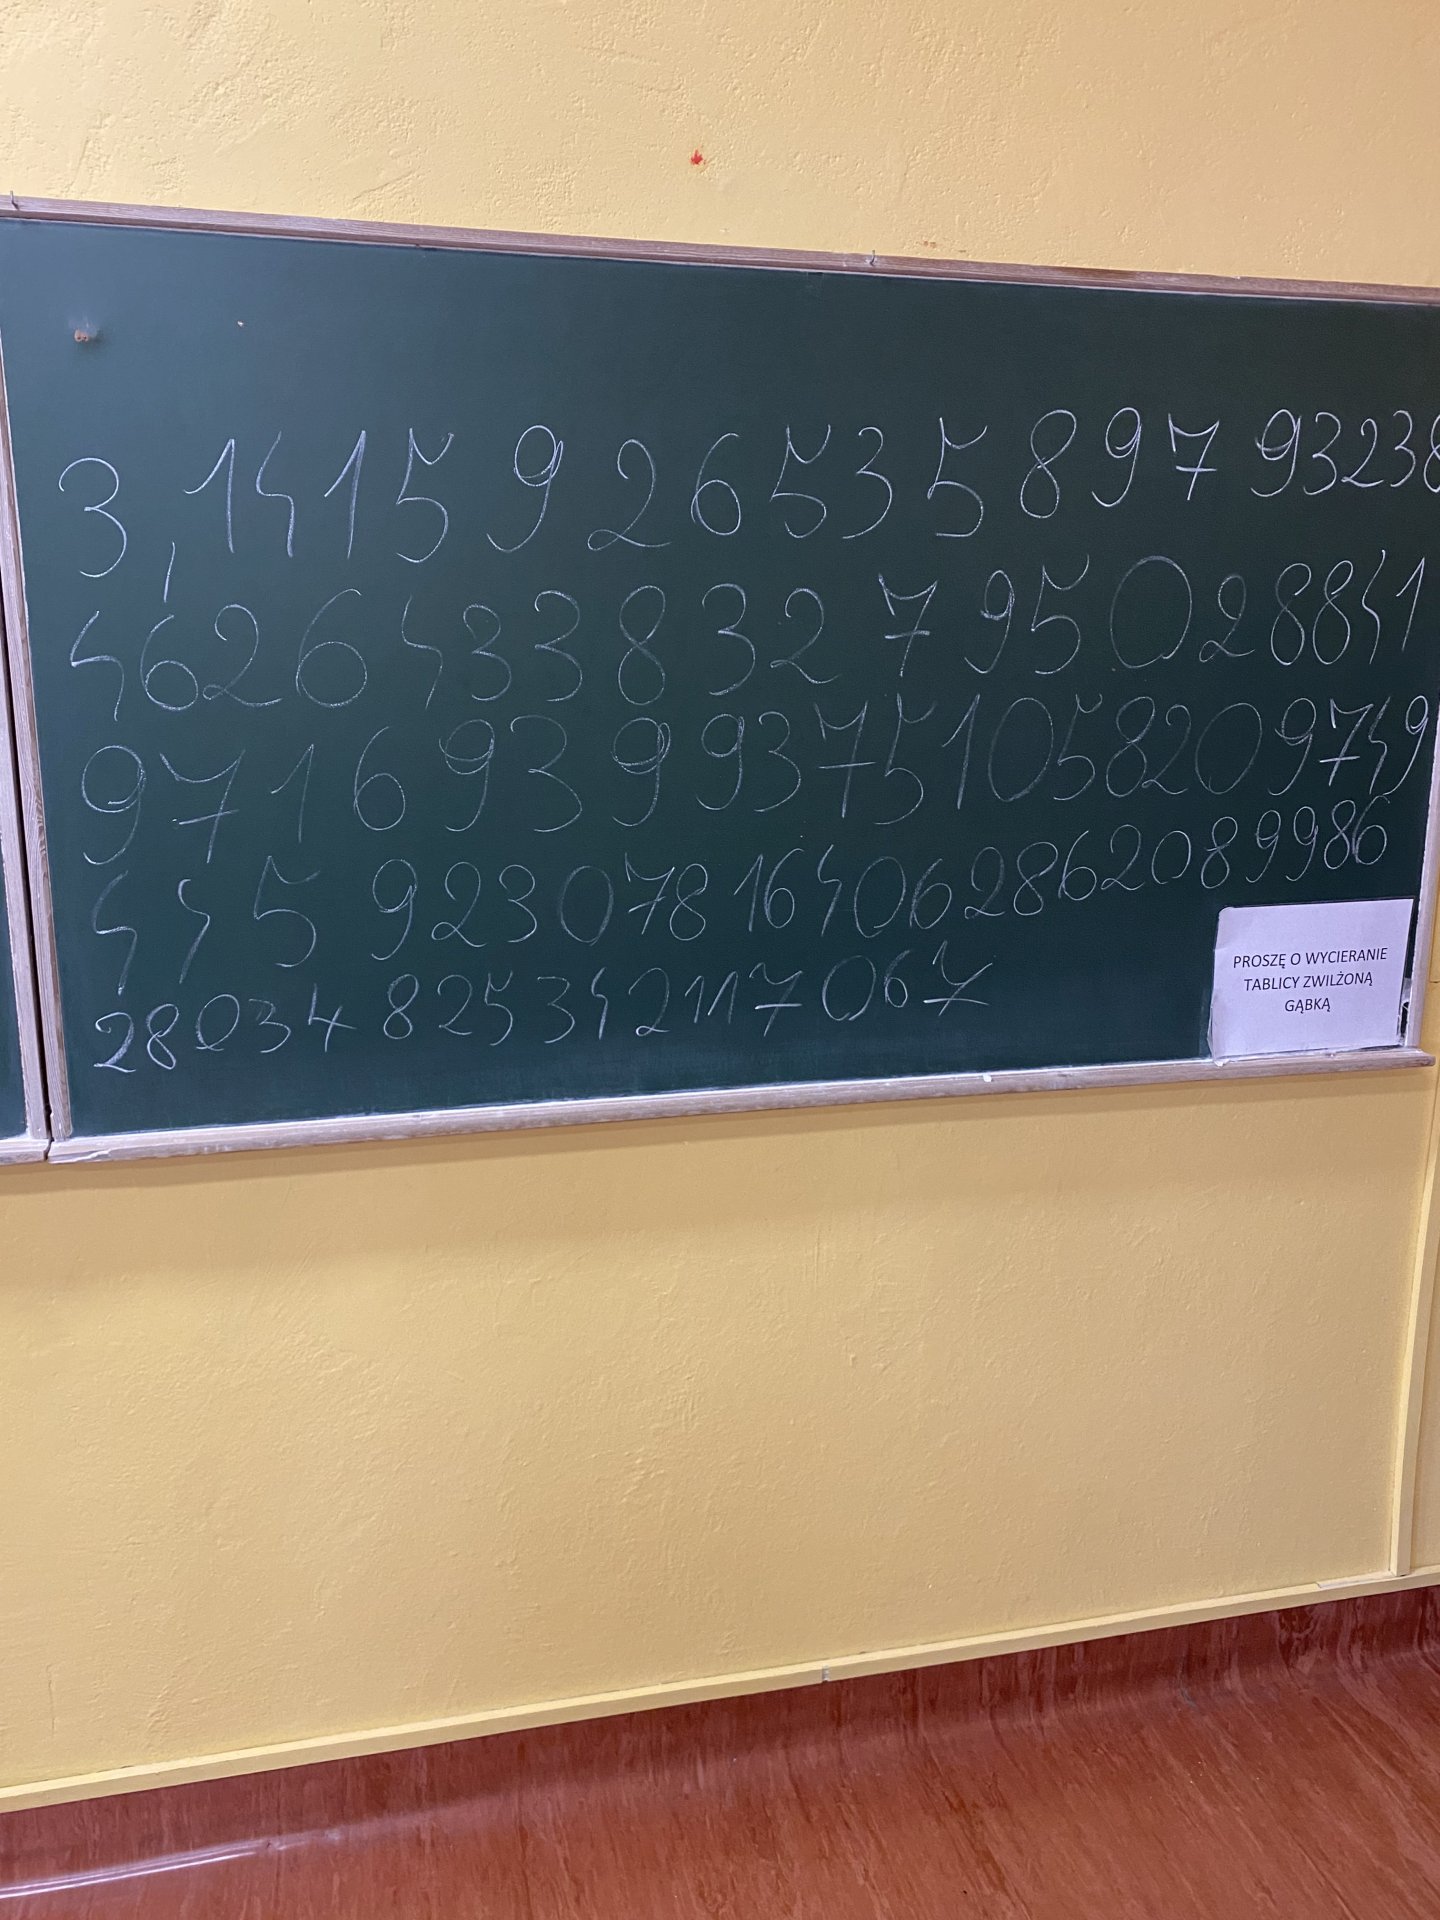 3,141592653589793238
4626433832795028841
971693993751058209749
44592307816406286208998​6
28034825342117067
PROSZĘ O WYCIERANIE
TABLICY ZWILŻONĄ
GĄBKĄ